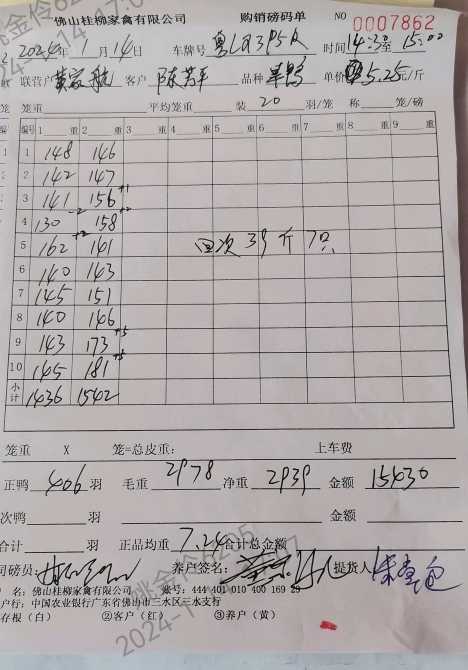 佛山桂柳家禽有限公司 购销磅码单 NO 0007862
2024年1月14日 车牌号 粤L 时间14:30至15:00
联营户 黄家航 客户 陈芳平 品种 单价 5.25元/斤
笼 笼重 平均笼重 装 20 羽/笼 称 笼/磅
编号 1 重 2 重 3 重 4 重 5 重 6 重 7 重 8 重 9 重
1 148 146
2 142 147
3 141 156 +1
4 130 -2 158 +2
5 162 +2 141 回次39斤7只
6 140 143
7 145 151
8 140 146
9 143 173 +5
10 145 181 +5
小计 1436 1542
笼重 X 笼=总皮重: 上车费
正鸭 406 羽 毛重 2978 净重 2939 金额 15430
次鸭 羽 金额
合计 羽 正品均重 7.24 合计总金额
司磅员: 养户签名: 提货人
名: 佛山桂柳家禽有限公司 账号: 444 401 010 400 169 29
户行: 中国农业银行广东省佛山市三水区三水支行
存根(白) ②客户(红) ③养户(黄)